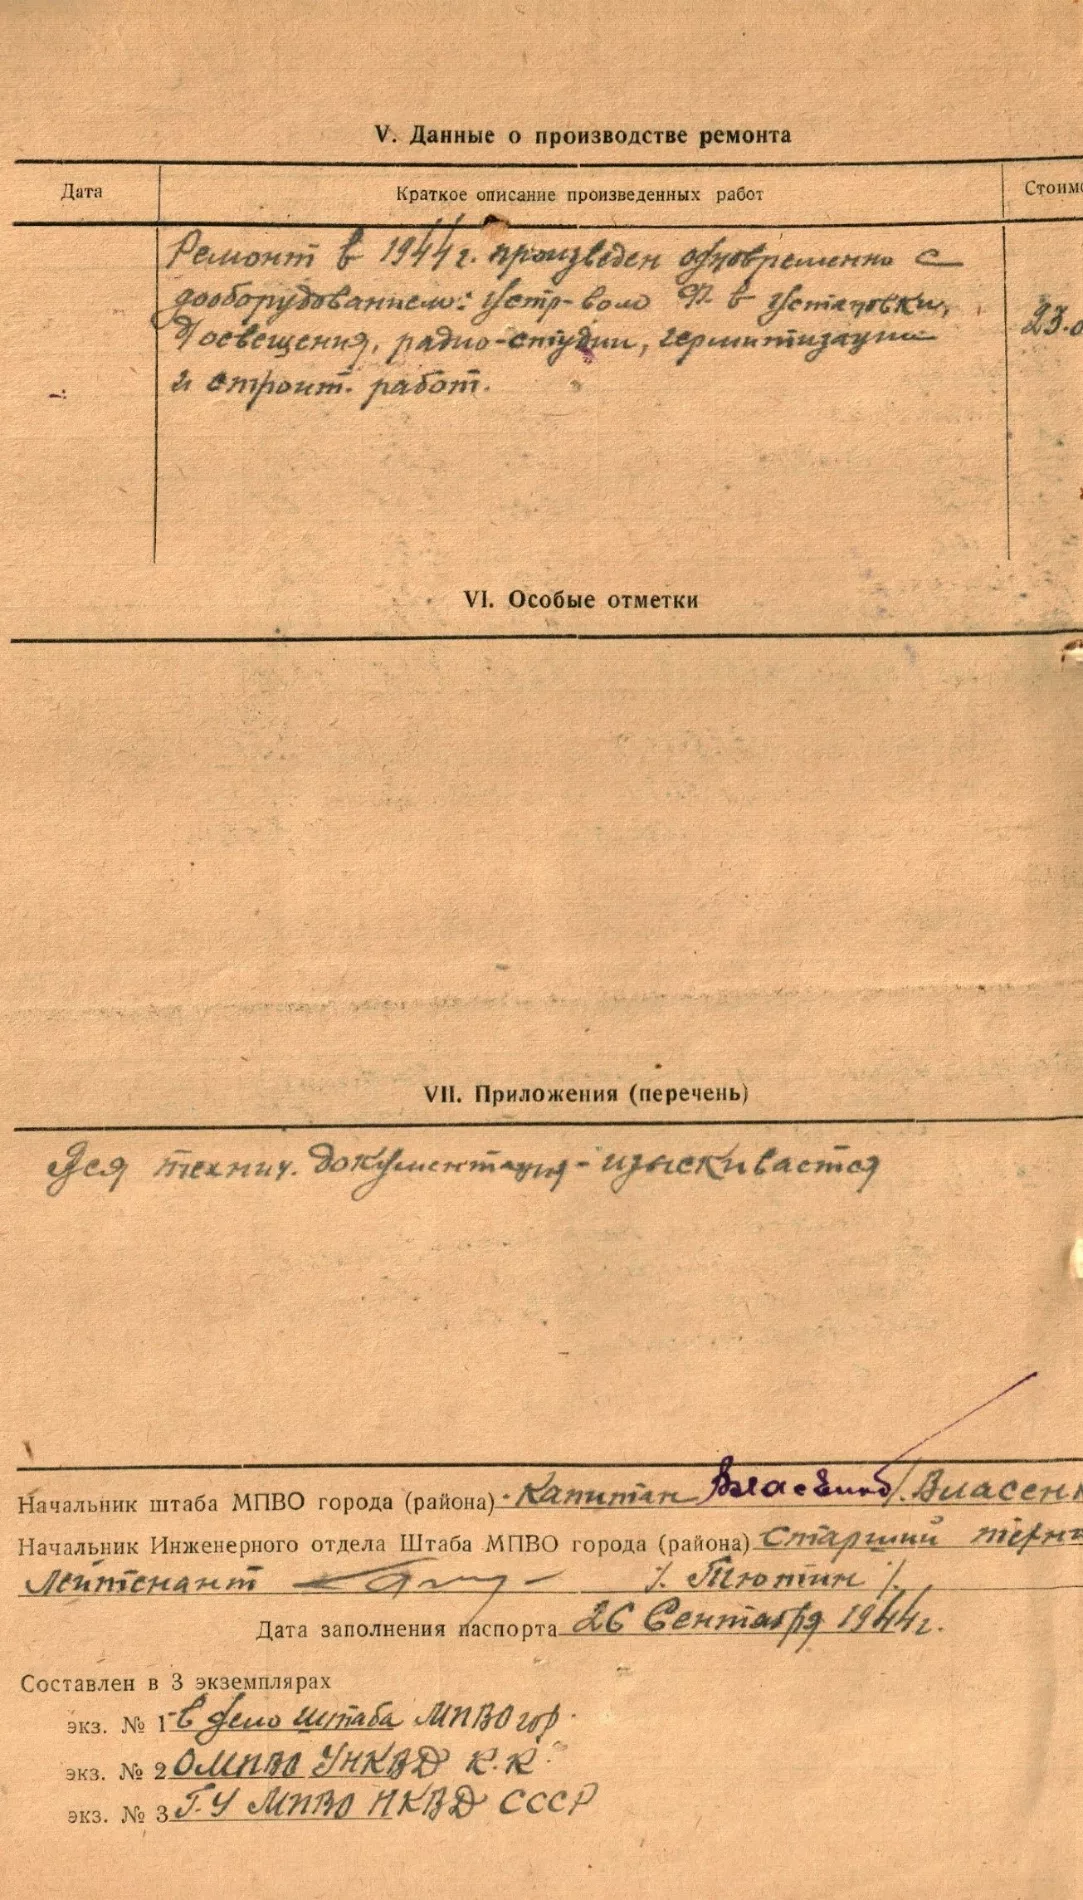 V. Данные о производстве ремонта
Дата Краткое описание произведенных работ Стоимо
Ремонт в 1944 г. произведен одновременно с
дооборудованием: устр-вом в установки,
освещения, радио-студии, герметизации 23.0
и строит. работ.
VI. Особые отметки
VII. Приложения (перечень)
Вся технич. документация - изыскивается
Начальник штаба МПВО города (района) Капитан /. Власен
Начальник Инженерного отдела Штаба МПВО города (района) Старший
лейтенант /. Тютин /.
Дата заполнения паспорта 26 Сентября 1944 г.
Составлен в 3 экземплярах
экз. № 1 в дело штаба МПВО гор.
экз. № 2 ОМПВО УНКВД К.К.
экз. № 3 Г.У МПВО НКВД СССР